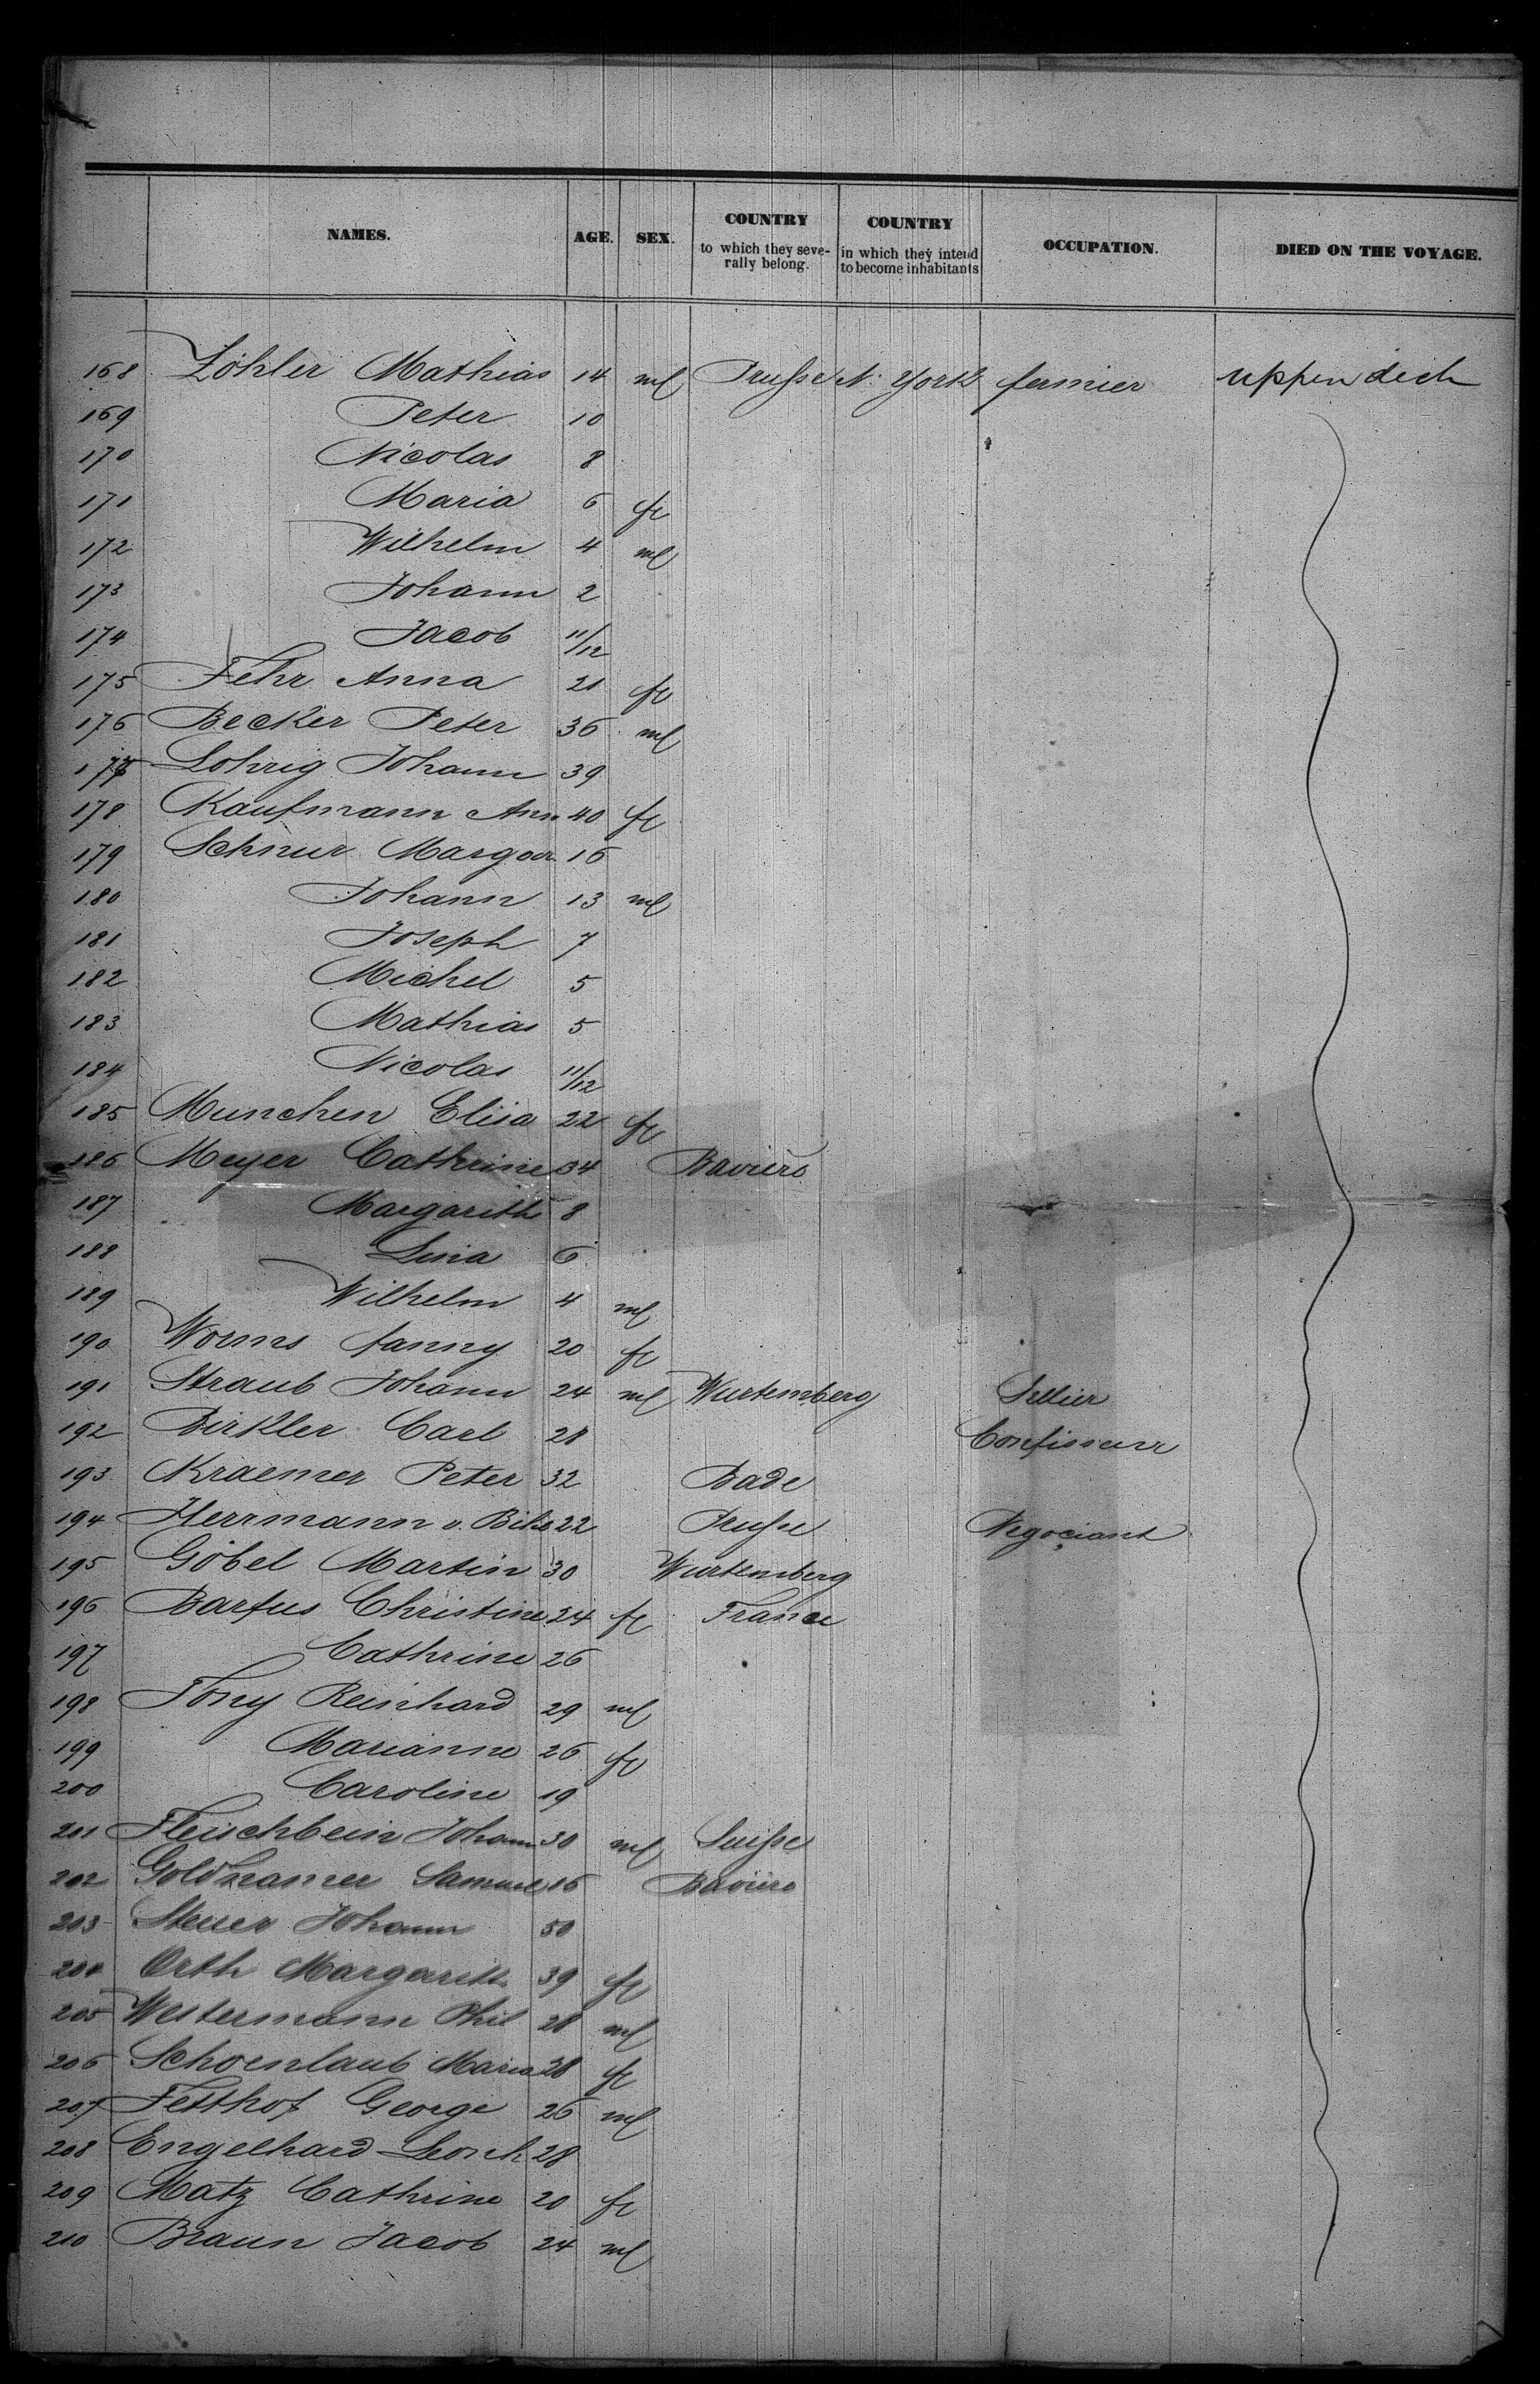 NAMES. AGE. SEX. COUNTRY to which they severally belong. COUNTRY in which they intend to become inhabitants OCCUPATION. DIED ON THE VOYAGE.
168 Löhler Mathias 14 ml Prusse N. York fermier uppen dech
169 Peter 10
170 Nicolas 8
171 Maria 6 fe
172 Wilhelm 4 ml
173 Johann 2
174 Jacob 11/12
175 Fehr Anna 21 fe
176 Becker Peter 36 ml
177 Lohrig Johann 39
178 Kaufmann Ann 40 fe
179 Schnur Margar 16
180 Johann 13 ml
181 Joseph 7
182 Michel 5
183 Mathias 5
184 Nicolas 11/12
185 Munchen Elisa 22 fe
186 Meyer Cathrine 34 Baviere
187 Margarith 8
188 Lina 6
189 Wilhelm 4 ml
190 Worms fanny 20 fe
191 Straub Johann 24 ml Wurtemberg Sellier
192 Birkler Carl 28 Confiseur
193 Kraemer Peter 32 Bade
194 Herrmann v. 22 Prusse Negociant
195 Göbel Martin 30 Wurtemberg
196 Barfus Christine 24 fe France
197 Cathrine 26
198 Tony Reinhard 29 ml
199 Marianne 26 fe
200 Caroline 19
201 Fleischbein Johann 30 ml Suisse
202 Goldhamer Samuel 16 Baviere
203 Steuer Johann 50
204 Orth Margarith 39 fe
205 Westermann Phil 28 ml
206 Schoenlaub Maria 28 fe
207 Fetthof George 26 ml
208 Engelhard Leonh 28
209 Matz Cathrine 20 fe
210 Braun Jacob 24 ml